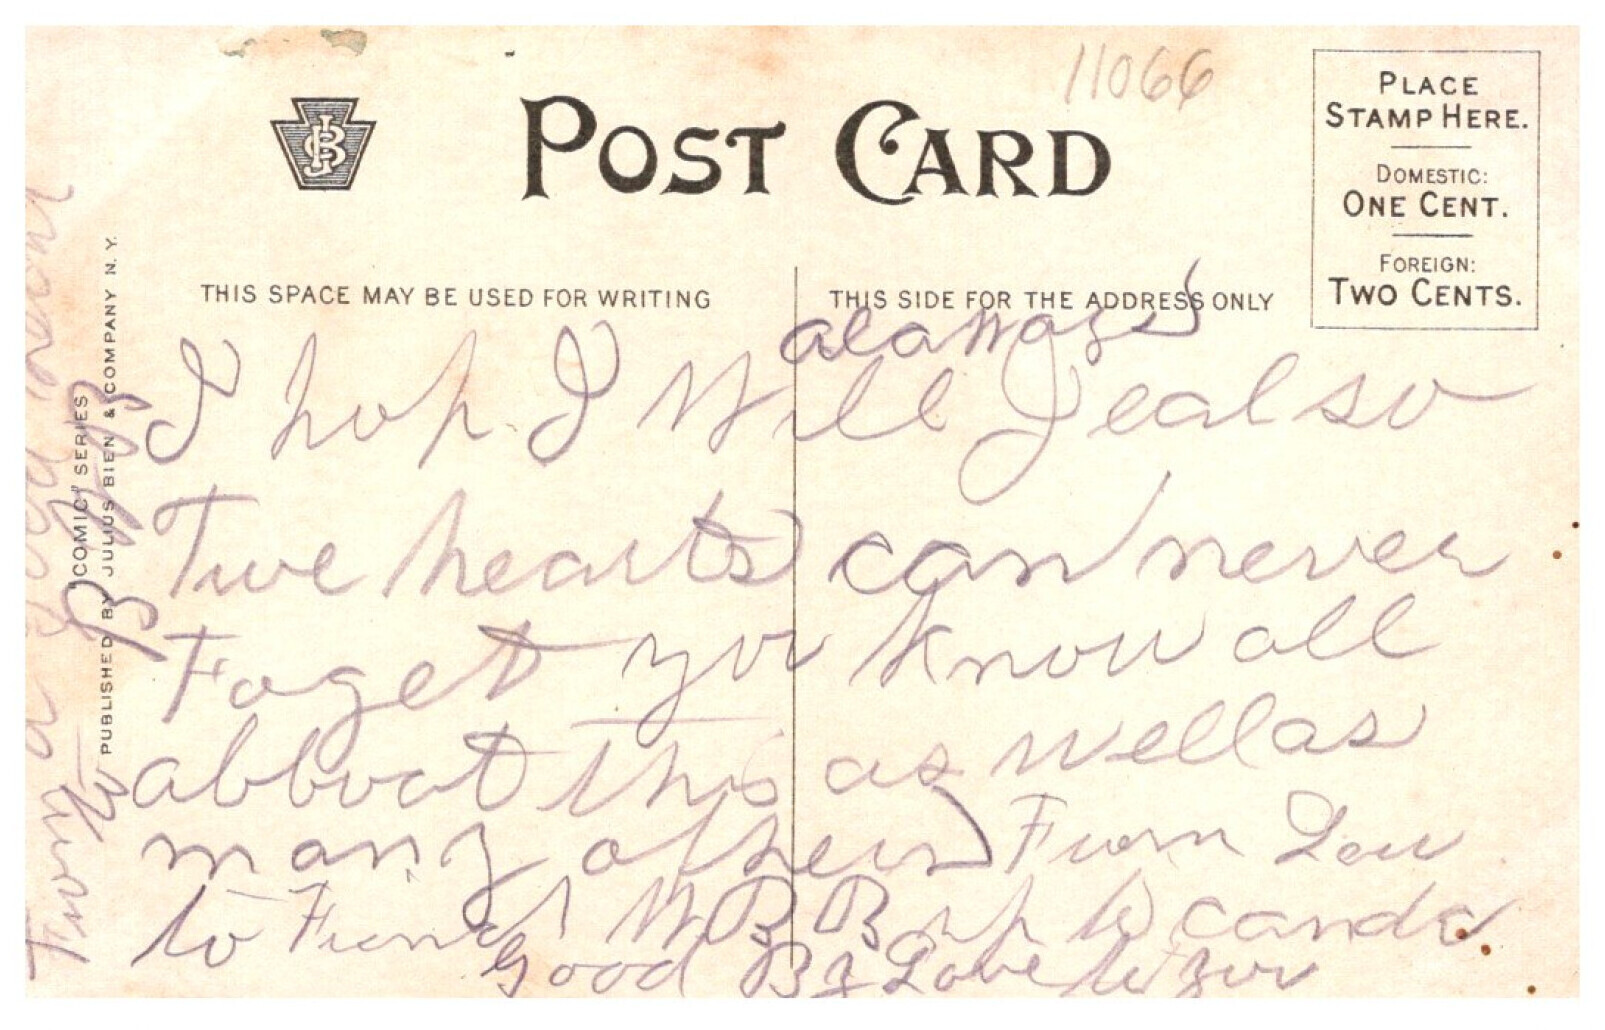 11066
PLACE
STAMP HERE.
DOMESTIC:
ONE CENT.
FOREIGN:
TWO CENTS.
JBC
POST CARD
THIS SPACE MAY BE USED FOR WRITING
THIS SIDE FOR THE ADDRESS ONLY
alaways
I hop I will Jeal so
Twe hearts can never
Foget you know all
abboat this as well as
many others From Lou
to Fiend W B B up to
Good By Love to you
"COMIC" SERIES
PUBLISHED BY JULIUS BIEN & COMPANY N.Y.
From a good
to